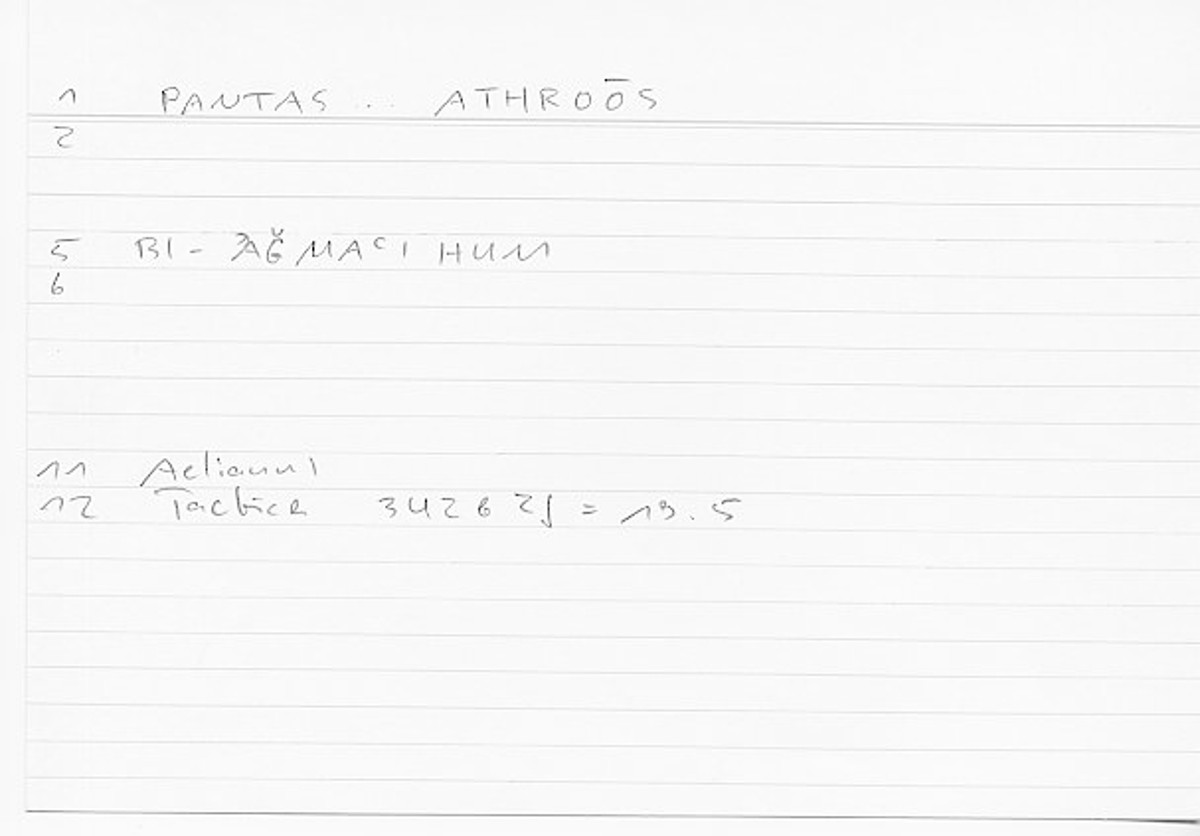 1 PANTAS .. ATHROŌS
2
5 BI- ǦAĞMAʿI HUM
6
11 Aeliani
12 Tactica 342 6 2f = 19.5